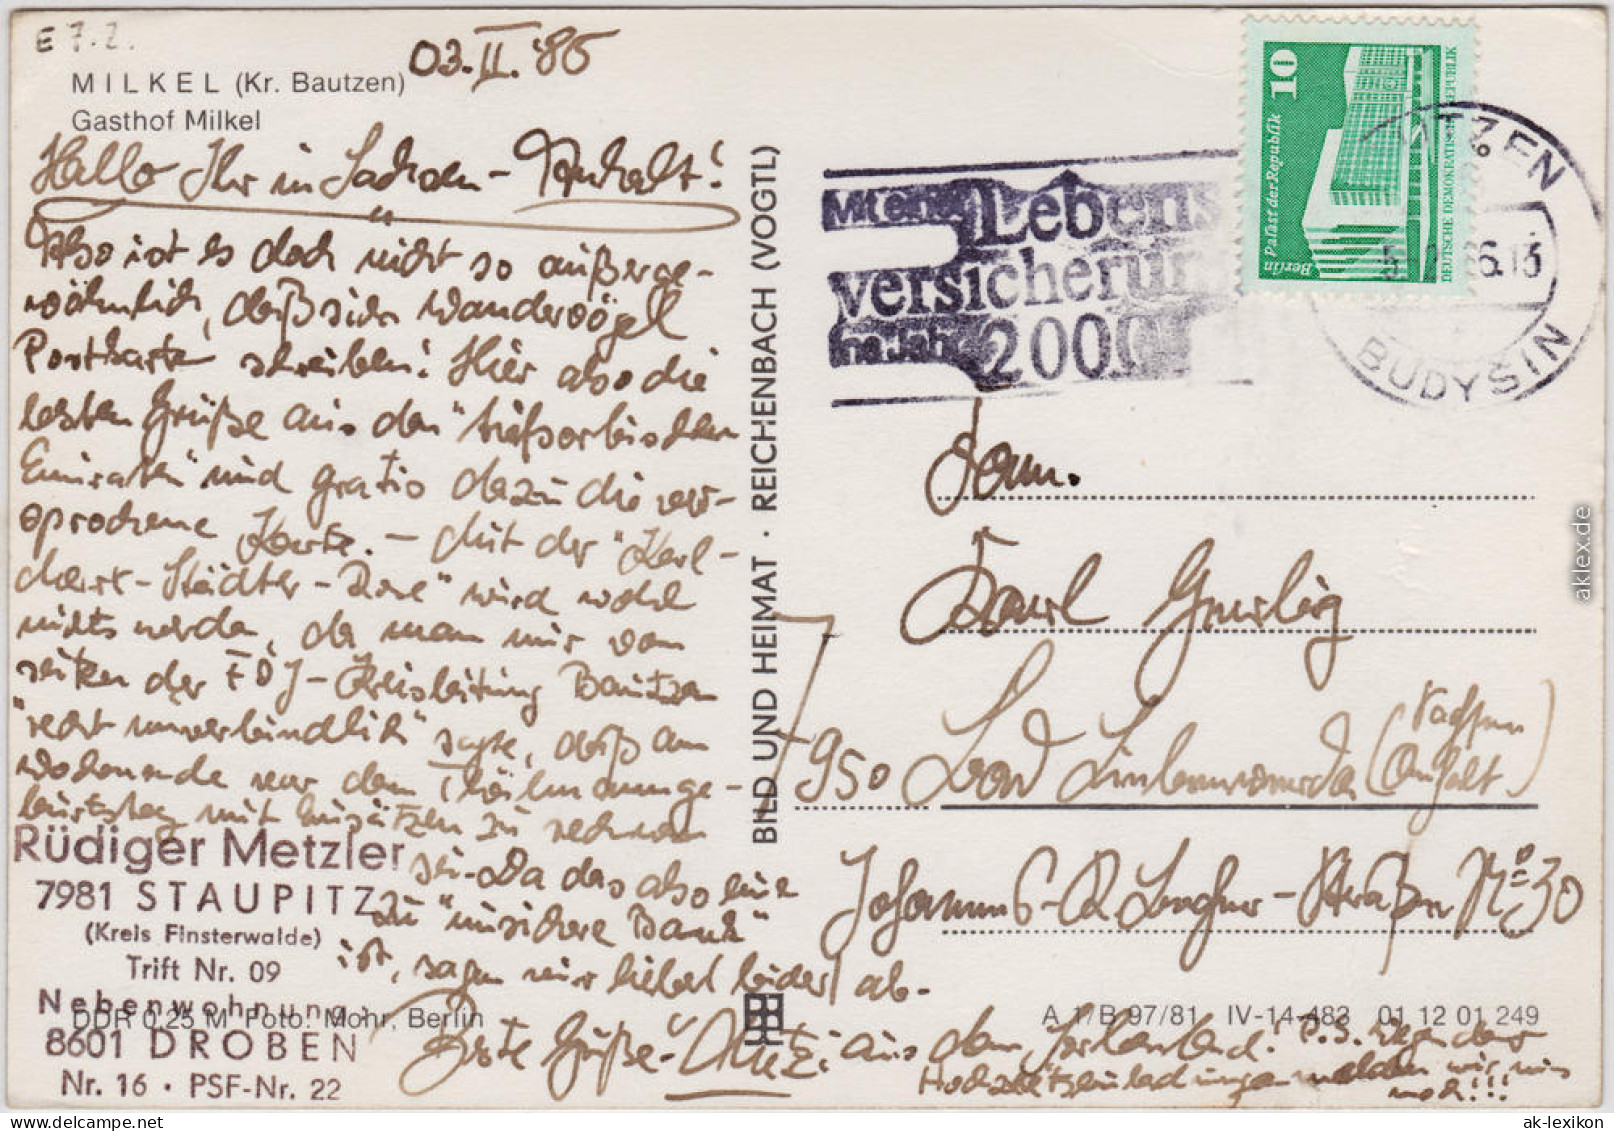 E 7.2.
MILKEL (Kr. Bautzen)
Gasthof Milkel
03.II.'86
Hallo Ihr in Sachsen-Anhalt!
Also ist es doch nicht so außerge-
wöhnlich, daß sich Wandervögel
Postkarten schreiben! Hier also die
besten Grüße aus den "tiefsorbischen
Emiraten" und gratis dazu die ver-
sprochene Karte. – Mit der "Karl-
Städter-
nichts werden, da man mir von
seiten der FDJ-Kreisleitung Bautzen
"recht unverbindlich" sagte, daß am
Wochenende vor dem Thälmannge-
burtstag mit Einsätzen zu rechnen
sei. Da das also eine
zu "unsichere Bank"
ist, sagen wir lieber leider ab.
Beste Grüße – Metzi aus dem Sorbenland!
P.S. Wegen der
Hochzeitseinladungen melden wir uns
noch!!!
Rüdiger Metzler
7981 STAUPITZ
(Kreis Finsterwalde)
Trift Nr. 09
Nebenwohnung:
8601 DROBEN
Nr. 16 · PSF-Nr. 22
DDR 0,25 M Foto: Mohr, Berlin
BILD UND HEIMAT · REICHENBACH (VOGTL)
Mit einer Lebens
versicherung
ins Jahr 2000
10
Palast der Republik
Berlin
DEUTSCHE DEMOKRATISCHE REPUBLIK
UTZEN
86.13
BUDYSIN
Fam.
Karl
7950 Bad Liebenwerda (Sachsen
Anhalt)
Johannes-R.-Becher-Straße Nr. 30
A 1/B 97/81 IV-14-483 01 12 01 249
aklex.de
ak-lexikon